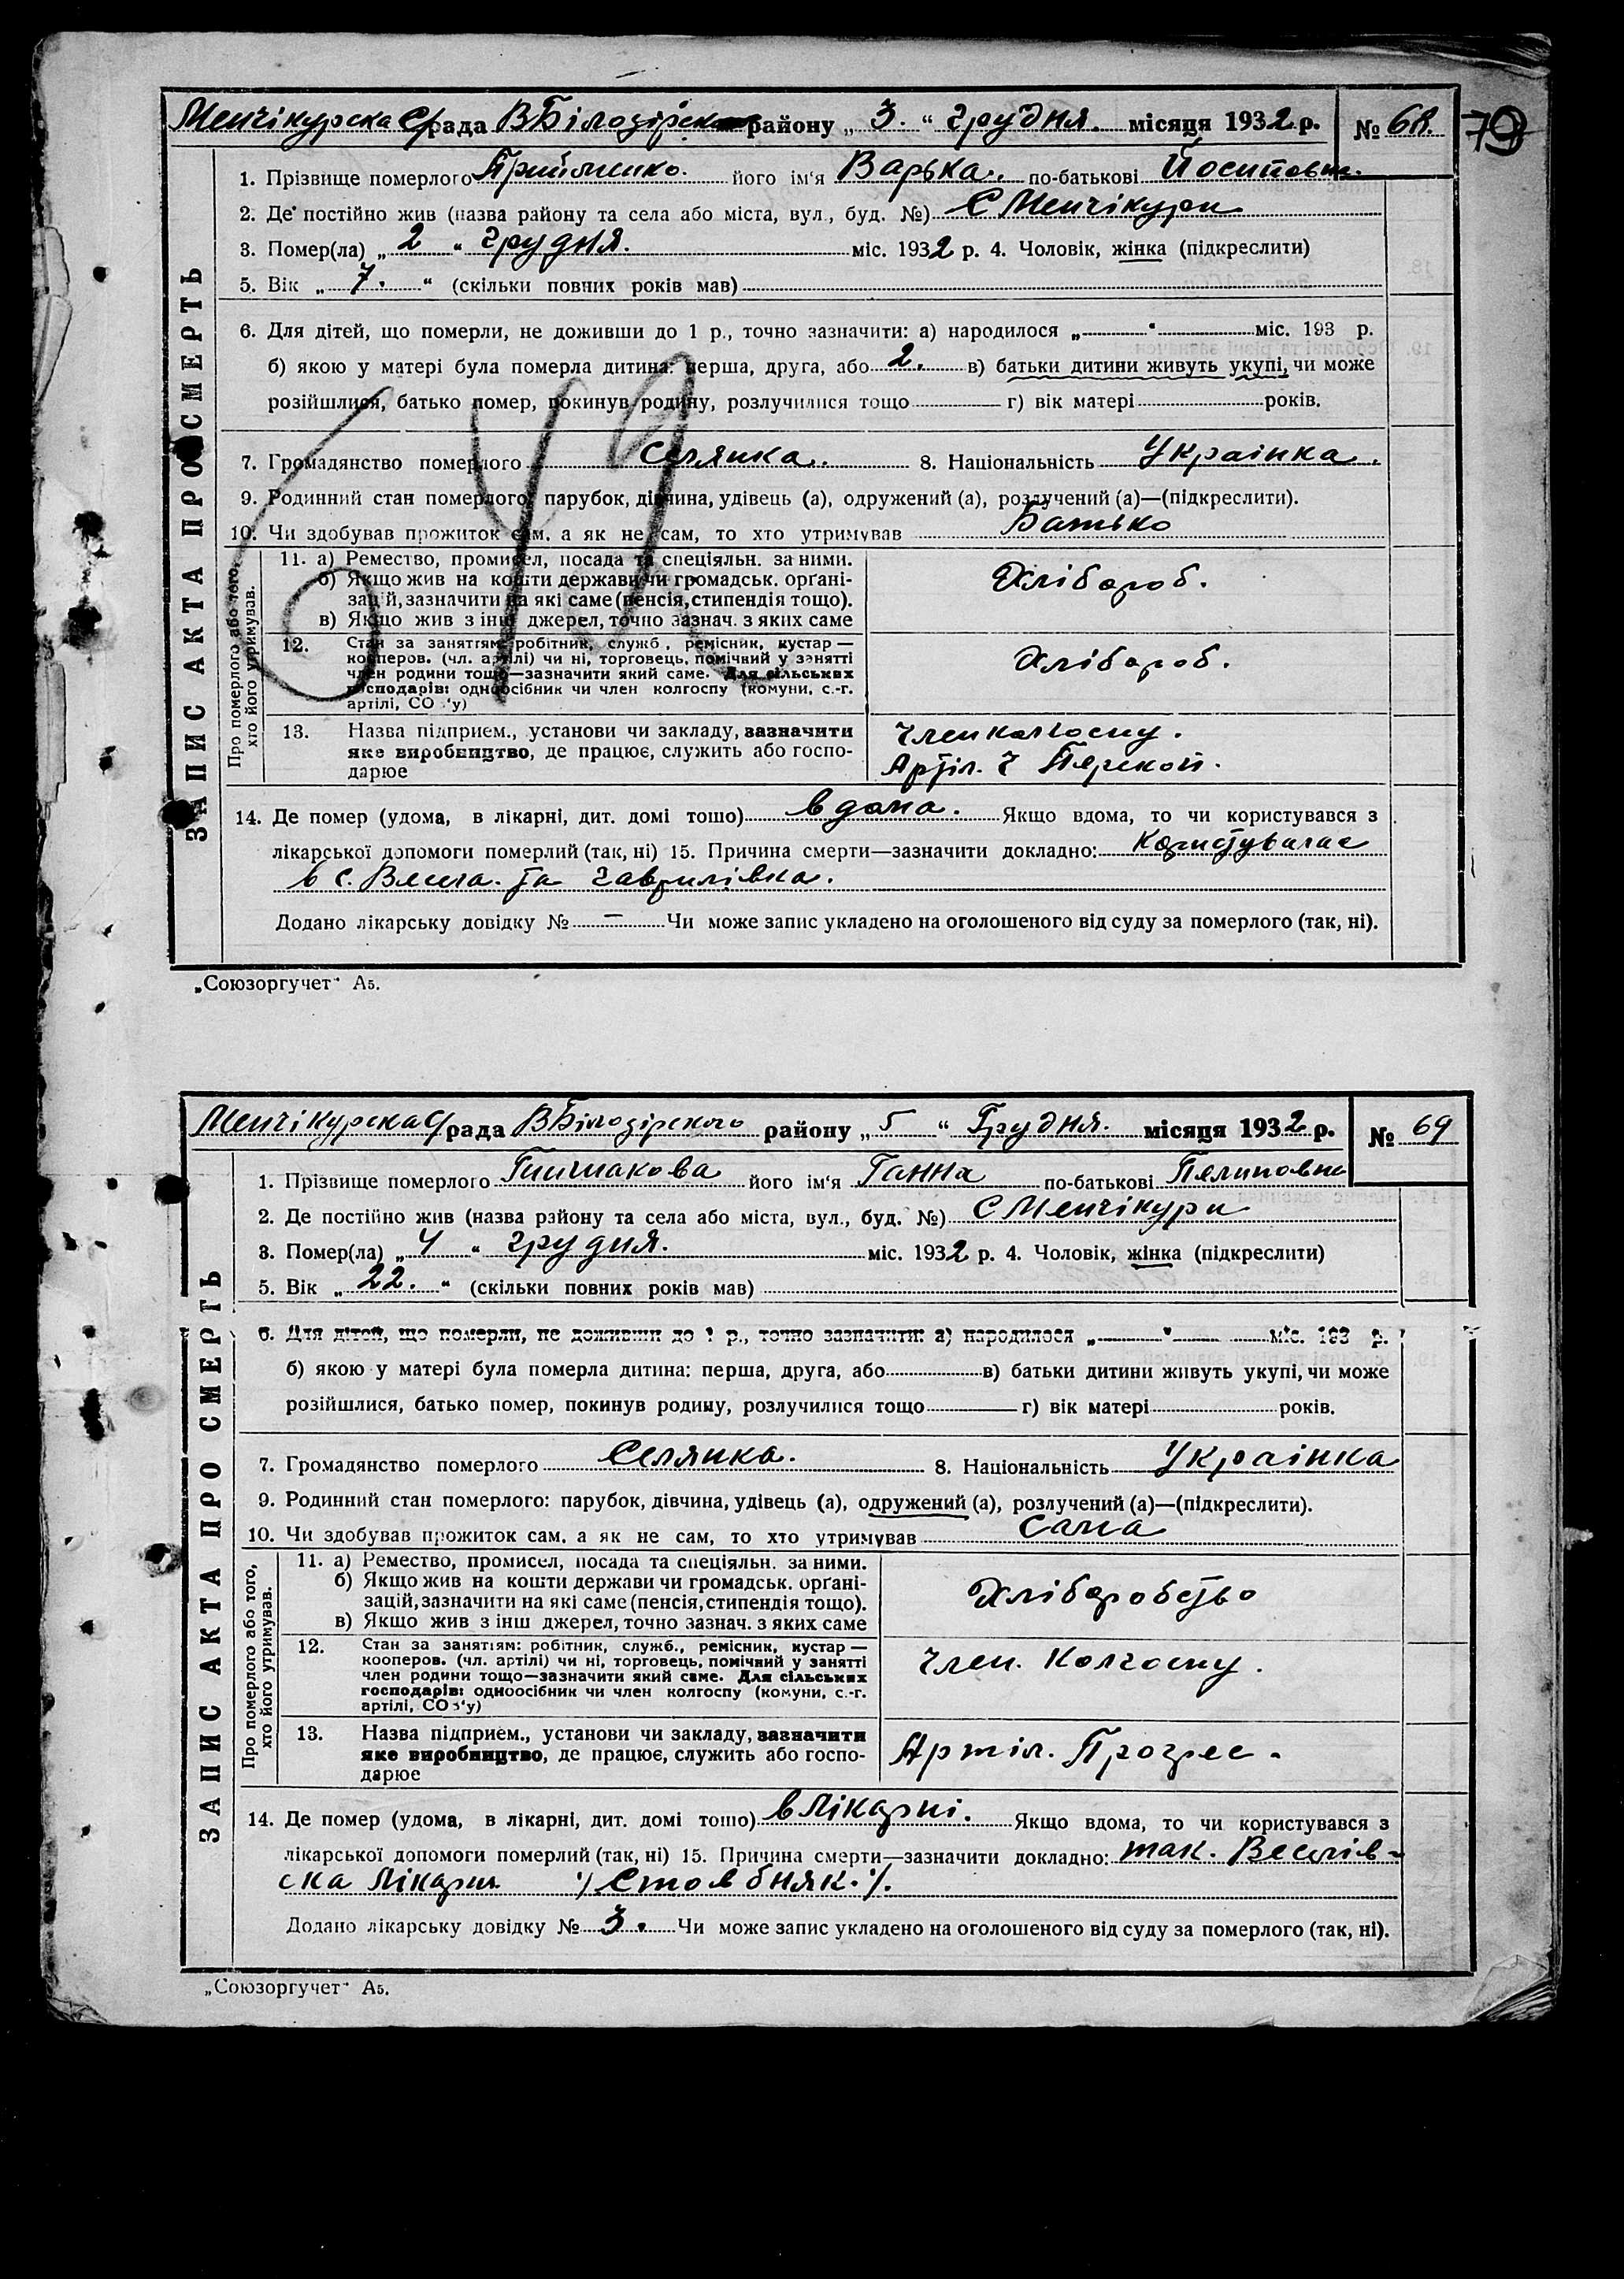 Менчікурска С/рада ВБілозірского району „ 3. “ грудня. місяця 1932 р. № 68. 79
1. Прізвище померлого його ім‘я Варька. по-батькові Йосиповн.
2. Де постійно жив (назва району та села або міста, вул., буд. №) С Менчікури
3. Помер(ла) „ 2 “ грудня. міс. 1932 р. 4. Чоловік, жінка (підкреслити)
5. Вік „ 7. “ (скільки повних років мав)
6. Для дітей, що померли, не доживши до 1 р., точно зазначити: а) народилося „ “ міс. 193 р.
б) якою у матері була померла дитина: перша, друга, або 2. в) батьки дитини живуть укупі, чи може
розійшлися, батько помер, покинув родину, розлучилися тощо г) вік матері років.
7. Громадянство померлого Селянка. 8. Національність Украінка.
9. Родинний стан померлого: парубок, дівчина, удівець (а), одружений (а), розлучений (а)—(підкреслити).
10. Чи здобував прожиток сам, а як не сам, то хто утримував Батько
ЗАПИС АКТА ПРО СМЕРТЬ
Про померлого або того,
хто його утримував.
11. а) Ремество, промисел, посада та спеціяльн. за ними.
б) Якщо жив на кошти держави чи громадськ. орґані-
зацій, зазначити на які саме (пенсія, стипендія тощо).
в) Якщо жив з інш джерел, точно зазнач. з яких саме
Хлібороб.
12. Стан за заняттям: робітник, служб., ремісник, кустар —
кооперов. (чл. артілі) чи ні, торговець, помічний у занятті
член родини тощо—зазначити який саме. Для сільських
господарів: одноосібник чи член колгоспу (комуни, с.-г.
артілі, СОЗ‘у)
Хлібороб.
13. Назва підприєм., установи чи закладу, зазначити
яке виробництво, де працює, служить або госпо-
дарюе
Член колгоспу.
Артіл.
14. Де помер (удома, в лікарні, дит. домі тощо) вдома. Якщо вдома, то чи користувався з
лікарської допомоги померлий (так, ні) 15. Причина смерти—зазначити докладно: Користувалас
в с. Весела. та Гаврилівка.
Додано лікарську довідку № — Чи може запис укладено на оголошеного від суду за померлого (так, ні).
„Союзоргучет“ А5.
Менчікурска С/рада ВБілозірского району „ 5 “ Грудня. місяця 1932 р. № 69
1. Прізвище померлого його ім‘я Ганна по-батькові Пилиповна
2. Де постійно жив (назва району та села або міста, вул., буд. №) С Менчікури
3. Помер(ла) „ 4 “ грудня. міс. 1932 р. 4. Чоловік, жінка (підкреслити)
5. Вік „ 22. “ (скільки повних років мав)
6. Для дітей, що померли, не доживши до 1 р., точно зазначити: а) народилося „ “ міс. 193 р.
б) якою у матері була померла дитина: перша, друга, або в) батьки дитини живуть укупі, чи може
розійшлися, батько помер, покинув родину, розлучилися тощо г) вік матері років.
7. Громадянство померлого Селянка. 8. Національність Украінка
9. Родинний стан померлого: парубок, дівчина, удівець (а), одружений (а), розлучений (а)—(підкреслити).
10. Чи здобував прожиток сам, а як не сам, то хто утримував Сама
ЗАПИС АКТА ПРО СМЕРТЬ
Про померлого або того,
хто його утримував.
11. а) Ремество, промисел, посада та спеціяльн. за ними.
б) Якщо жив на кошти держави чи громадськ. орґані-
зацій, зазначити на які саме (пенсія, стипендія тощо).
в) Якщо жив з інш джерел, точно зазнач. з яких саме
Хліборобство
12. Стан за заняттям: робітник, служб., ремісник, кустар —
кооперов. (чл. артілі) чи ні, торговець, помічний у занятті
член родини тощо—зазначити який саме. Для сільських
господарів: одноосібник чи член колгоспу (комуни, с.-г.
артілі, СОЗ‘у)
Член. Колгоспу.
13. Назва підприєм., установи чи закладу, зазначити
яке виробництво, де працює, служить або госпо-
дарюе
Артіл. Прогрес.
14. Де помер (удома, в лікарні, дит. домі тощо) в Лікарні. Якщо вдома, то чи користувався з
лікарської допомоги померлий (так, ні) 15. Причина смерти—зазначити докладно: так. Веселів-
ска Лікарня /Стовбняк./.
Додано лікарську довідку № 3. Чи може запис укладено на оголошеного від суду за померлого (так, ні).
„Союзоргучет“ А5.